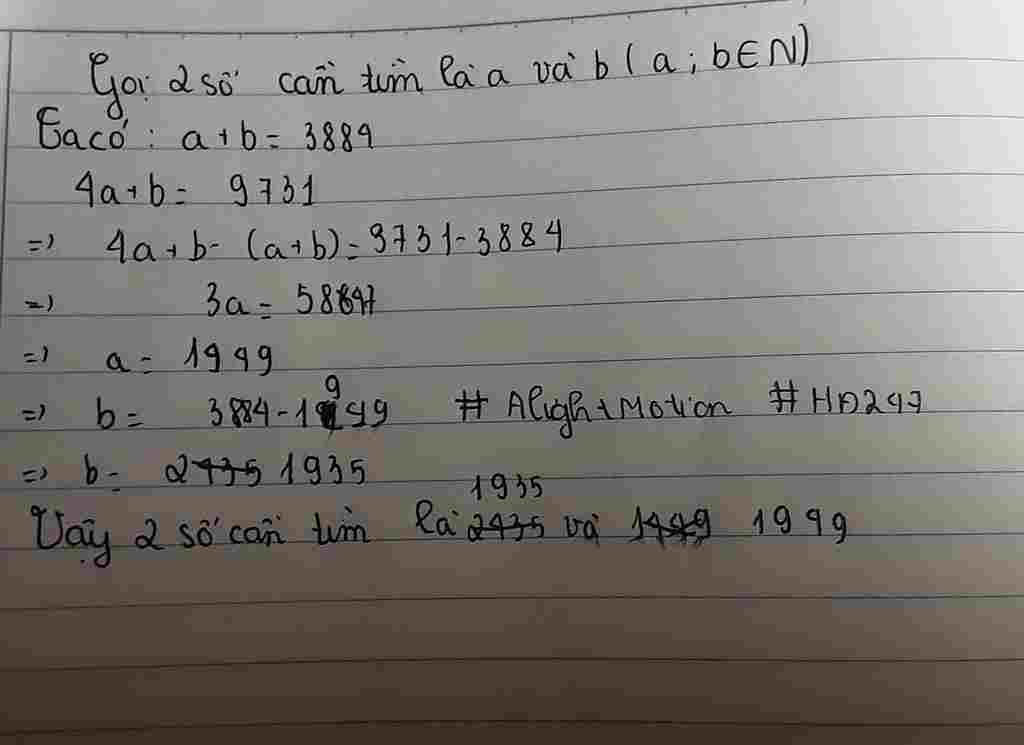 Gọi 2 số cần tìm là a và b ( a ; b ∈ N )
Ta có : a + b = 3884
4a + b = 9731
=> 4a + b - (a + b) = 9731 - 3884
=> 3a = 5847
=> a = 1949
=> b = 3884 - 1949 # Alight Motion # HD247
=> b = 1935
Vậy 2 số cần tìm là 1935 và 1949